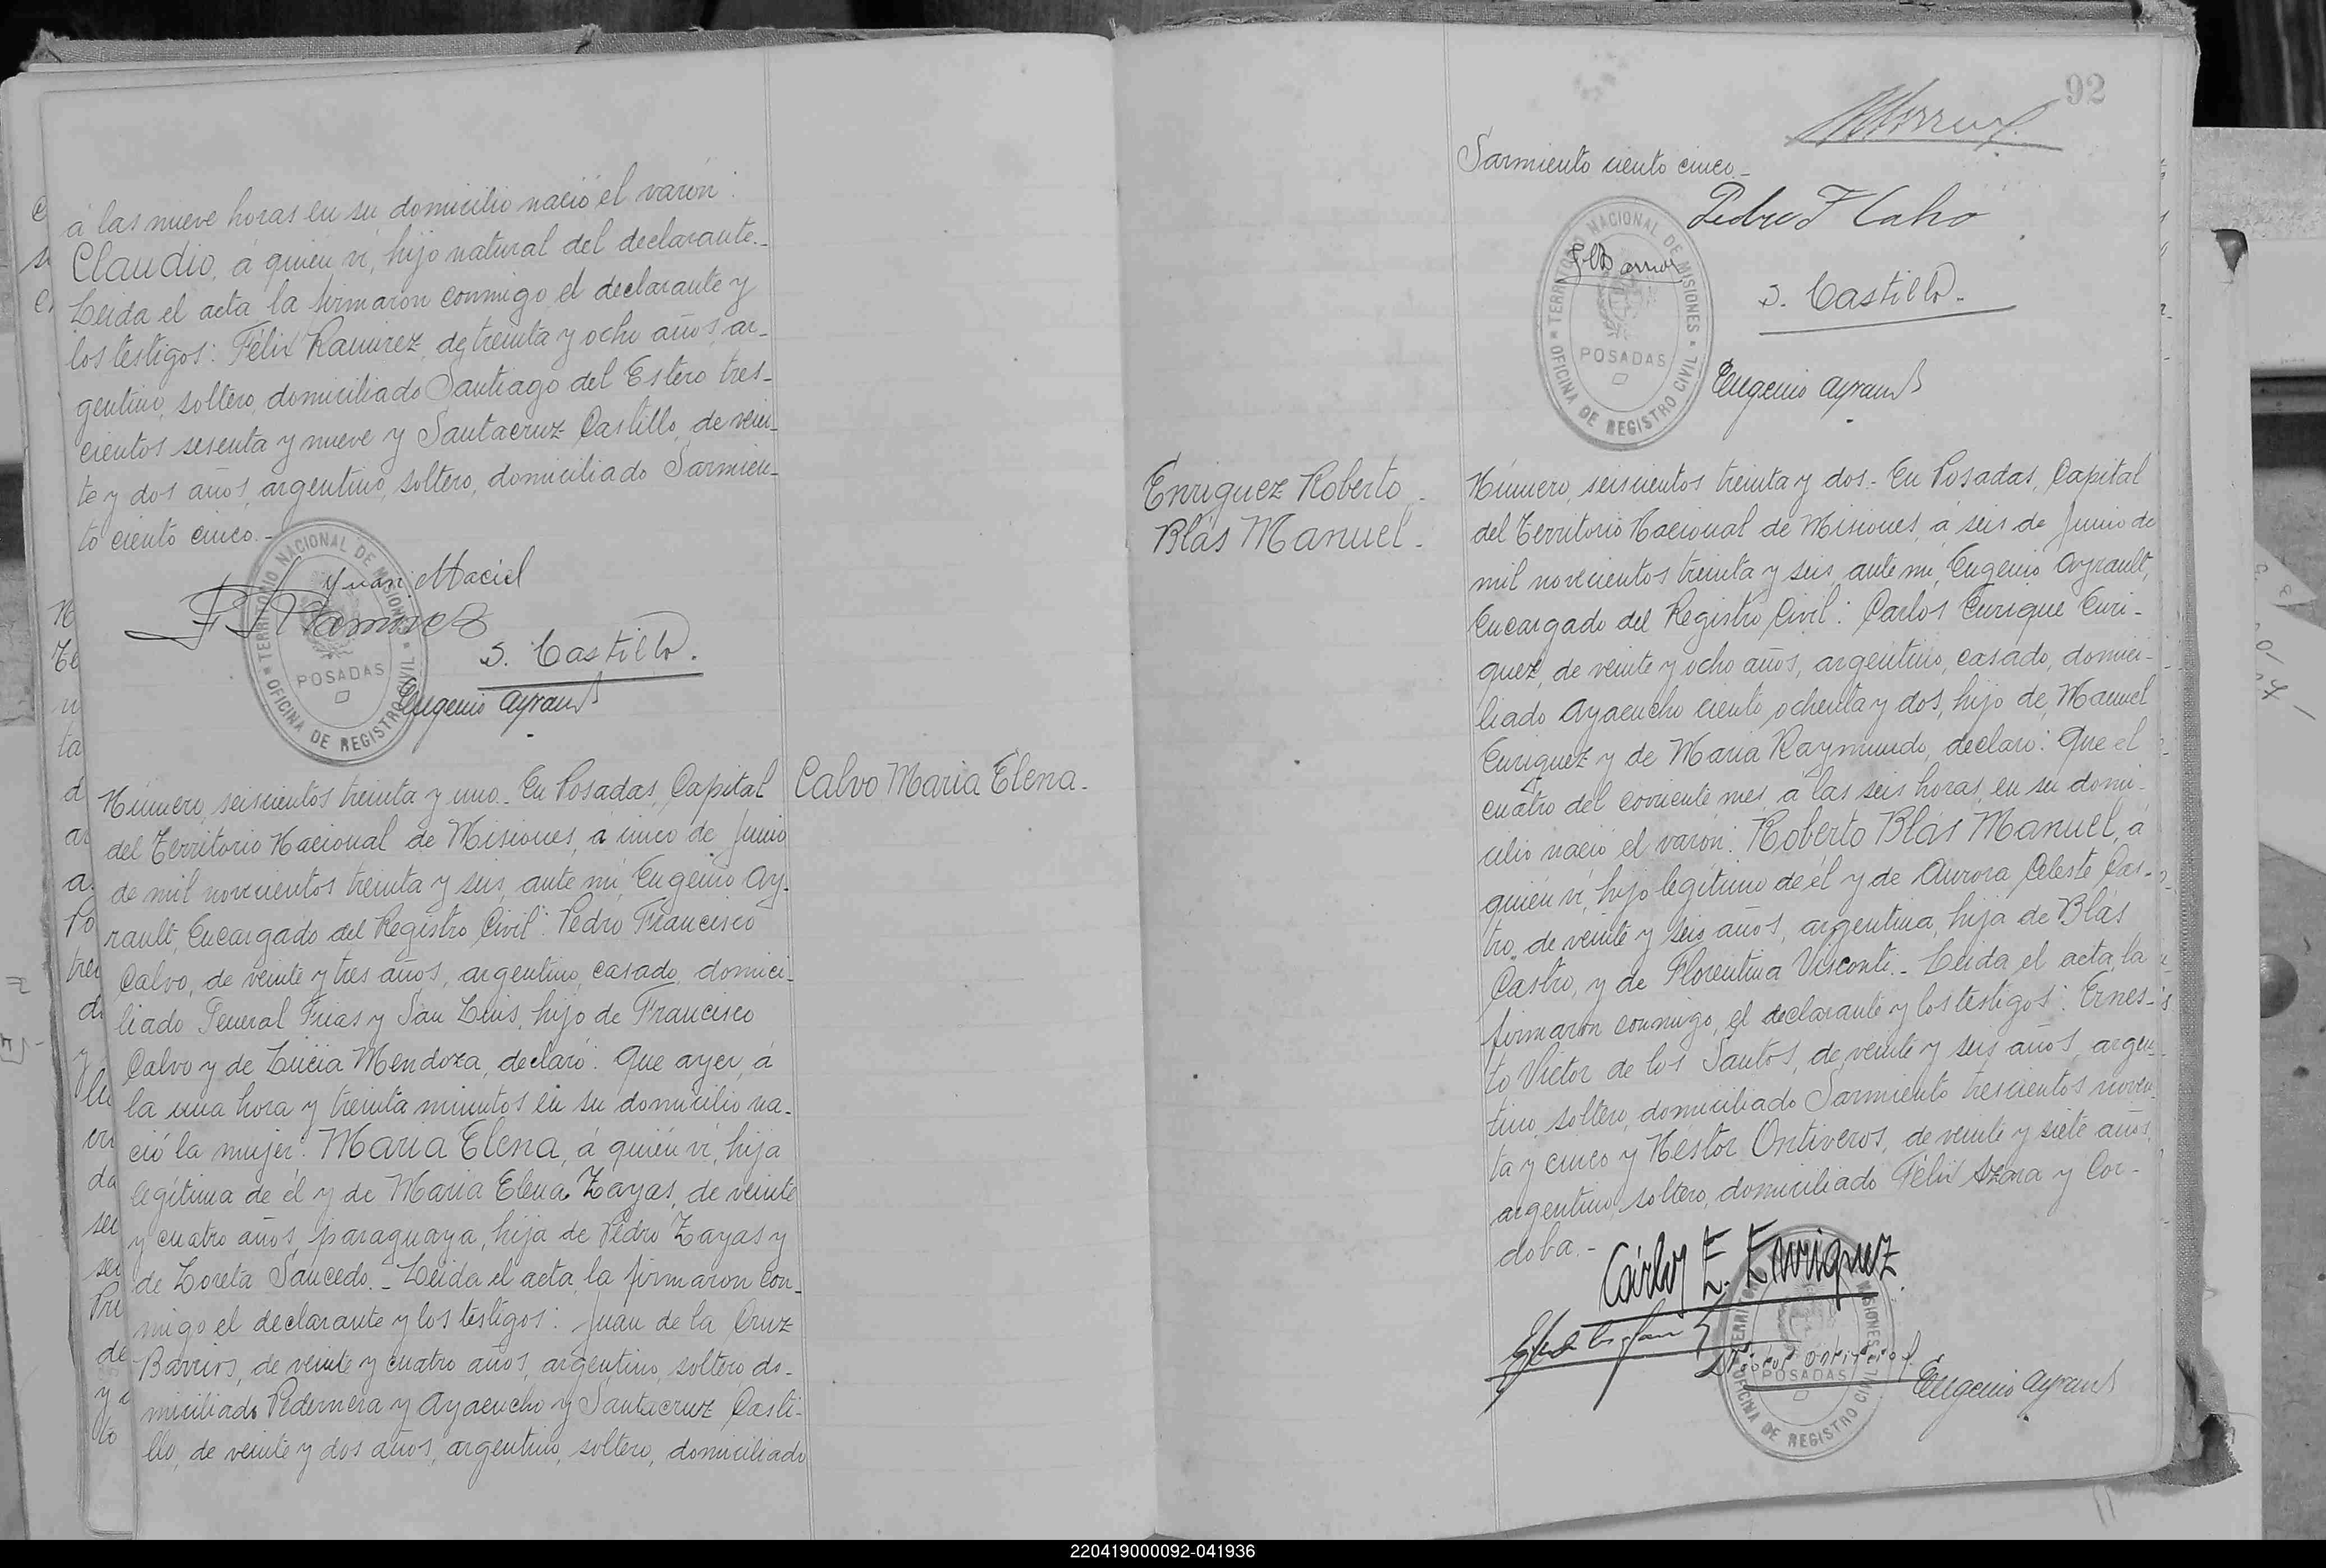 á las nueve horas en su domicilio nació el varón:
Claudio, á quién ví, hijo natural del declarante.-
Leida el acta la firmaron conmigo el declarante y
los testigos: Félix Ramirez, de treinta y ocho años, ar-
gentino, soltero, domiciliado Santiago del Estero tres-
cientos sesenta y nueve y Santacruz Castillo, de vein-
te y dos años, argentino, soltero, domiciliado Sarmien-
to ciento cinco.-
Juan Maciel
Ramirez
S. Castillo.
Eugenio Ayrault
TERRITORIO NACIONAL DE MISIONES
POSADAS
OFICINA DE REGISTRO CIVIL
Calvo Maria Elena.
Número, seiscientos treinta y uno.- En Posadas, Capital
del Territorio Nacional de Misiones, a cinco de Junio
de mil novecientos treinta y seis, ante mi, Eugenio Ay-
rault, Encargado del Registro Civil: Pedro Francisco
Calvo, de veinte y tres años, argentino, casado, domici-
liado General Frias y San Luis, hijo de Francisco
Calvo y de Lucia Mendoza, declaró: Que ayer, á
la una hora y treinta minutos en su domicilio na-
ció la mujer: Maria Elena, á quién ví, hija
legítima de él y de Maria Elena Zayas, de veinte
y cuatro años, paraguaya, hija de Pedro Zayas y
de Loreta Saucedo.- Leida el acta, la firmaron con-
migo el declarante y los testigos: Juan de la Cruz
Barrios, de veinte y cuatro años, argentino, soltero do-
miciliado Pedernera y Ayacucho y Santacruz Casti-
llo, de veinte y dos años, argentino, soltero, domiciliado
92
Sarmiento ciento cinco.-
Pedro F Calvo
S. Castillo.
Eugenio Ayrault
TERRITORIO NACIONAL DE MISIONES
POSADAS
OFICINA DE REGISTRO CIVIL
Enriquez Roberto
Blás Manuel.
Número, seiscientos treinta y dos.- En Posadas, Capital
del Territorio Nacional de Misiones, á seis de Junio de
mil novecientos treinta y seis, ante mi, Eugenio Ayrault,
Encargado del Registro Civil: Carlos Enrique Enri-
quez, de veinte y ocho años, argentino, casado, domici-
liado Ayacucho ciento ochenta y dos, hijo de Manuel
Enriquez y de Maria Raymundo, declaró: Que el
cuatro del corriente mes, á las seis horas, en su domi-
cilio nació el varón: Roberto Blás Manuel, á
quién ví, hijo legítimo de él y de Aurora Celeste Cas-
tro, de veinte y seis años, argentina, hija de Blás
Castro, y de Florentina Visconti.- Leida el acta, la
firmaron conmigo, el declarante y los testigos: Ernes-
to Victor de los Santos, de veinte y seis años, argen-
tino, soltero, domiciliado Sarmiento trescientos noven
ta y cinco y Néstor Ontiveros, de veinte y siete años,
argentino, soltero, domiciliado Félix Azara y Cor-
doba.-
Carlos E. Enriquez
Néstor Ontiveros
Eugenio Ayrault
POSADAS
OFICINA DE REGISTRO CIVIL
220419000092-041936